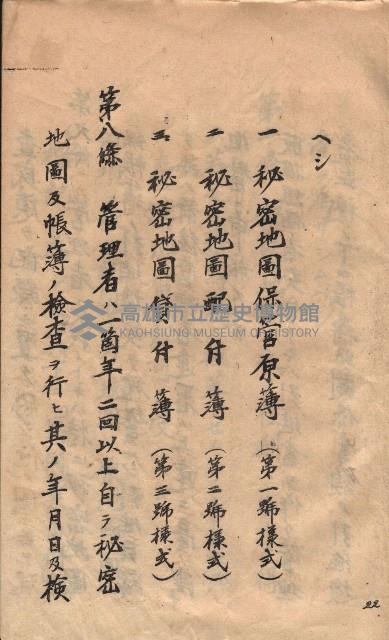 ヘシ
一 秘密地圖保管原薄 (第一號樣式)
二 秘密地圖配付薄 (第二號樣式)
三 秘密地圖貸付薄 (第三號樣式)
第八條 管理者ハ箇年二回以上自ラ秘密
地圖及帳薄ノ檢查ヲ行ヒ其ノ年月日及檢
22
高雄市立歷史博物館
KAOHSIUNG MUSEUM OF HISTORY